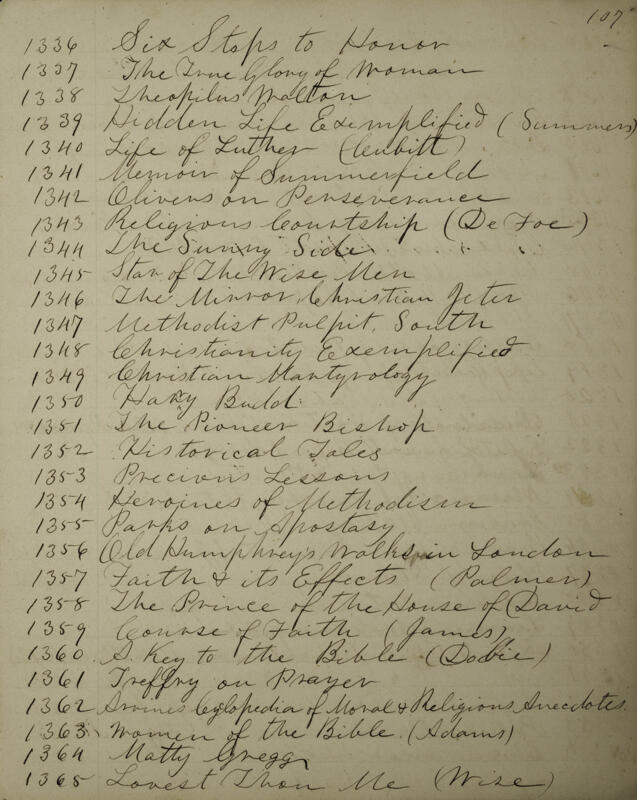 107
1336 Six Steps to Honor
1337 The True Glory of Woman
1338 Theopilus Walton
1339 Hidden Life Exemplified (Summers)
1340 Life of Luther (Cubitt)
1341 Memoir of Summerfield
1342 Olivers on Perseverance
1343 Religious Courtship (De Foe)
1344 The Sunny Side
1345 Star of The Wise Men
1346 The Mirror, Christian Jeter
1347 Methodist Pulpit, South
1348 Christianity Exemplified
1349 Christian Martyrology
1350 Harry Budd
1351 The Pioneer Bishop
1352 Historical Tales
1353 Precious Lessons
1354 Heroines of Methodism
1355 Parks on Apostasy
1356 Old Humphrey's Walks in London
1357 Faith & its Effects (Palmer)
1358 The Prince of the House of David
1359 Course of Faith (James)
1360 A Key to the Bible (Dobie)
1361 Treffry on Prayer
1362 Arvines Cyclopedia of Moral & Religious Anecdotes
1363 Women of the Bible (Adams)
1364 Matty Gregg
1365 Lovest Thou Me (Wise)